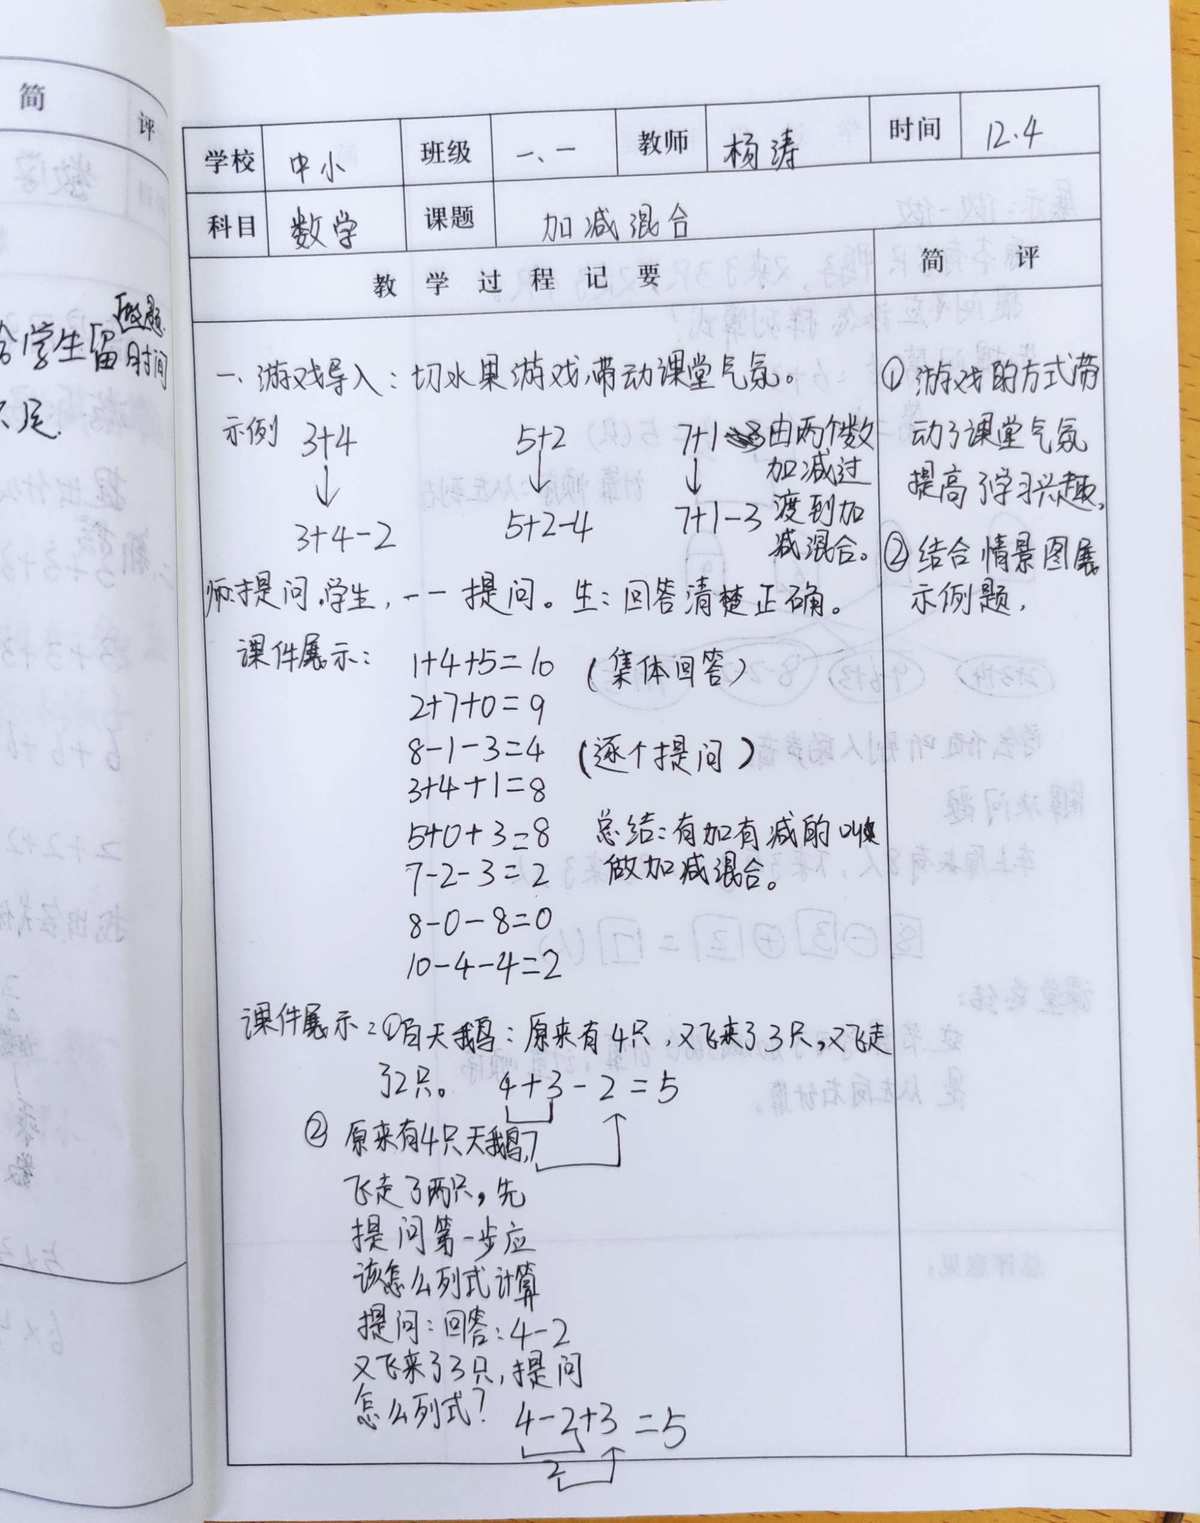 简 评
给学生留做题
时间
不足.
学校 中小 班级 一、一 教师 杨涛 时间 12.4
科目 数学 课题 加减混合
教学过程记要 简 评
一、游戏导入：切水果游戏,带动课堂气氛。
示例 3+4 5+2 7+1 由两个数
加减过
3+4-2 5+2-4 7+1-3 渡到加
减混合。
师:提问,学生,一一提问。生：回答清楚正确。
课件展示：
1+4+5=10 （集体回答）
2+7+0=9
8-1-3=4 （逐个提问）
3+4+1=8
5+0+3=8 总结：有加有减的叫
7-2-3=2 做加减混合。
8-0-8=0
10-4-4=2
课件展示：①白天鹅：原来有4只,又飞来了3只,又飞走
了2只。 4+3-2=5
7
② 原来有4只天鹅,
飞走了两只,先
提问第一步应
该怎么列式计算
提问：回答：4-2
又飞来了3只,提问
怎么列式？ 4-2+3=5
2
① 游戏的方式带
动了课堂气氛
提高了学习兴趣,
② 结合情景图展
示例题,